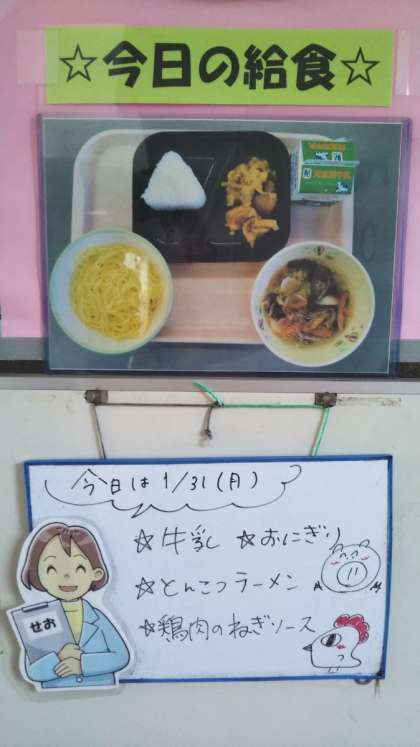 ☆今日の給食☆
今日は1/31(月)
☆牛乳 ☆おにぎり
☆とんこつラーメン
☆鶏肉のねぎソース
せお